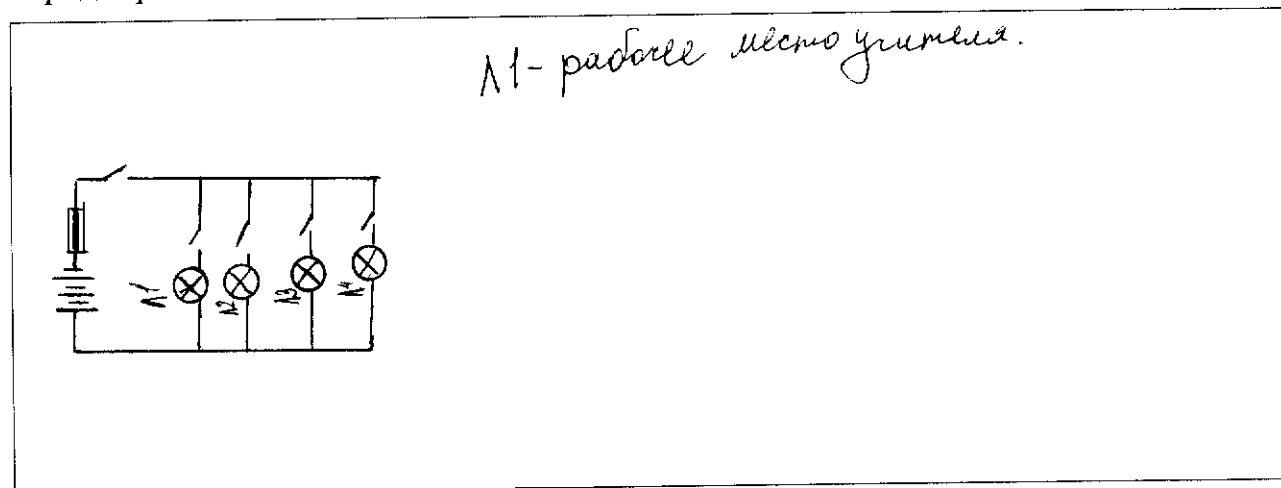 Л1 - рабочее место учителя.
Л1 Л2 Л3 Л4